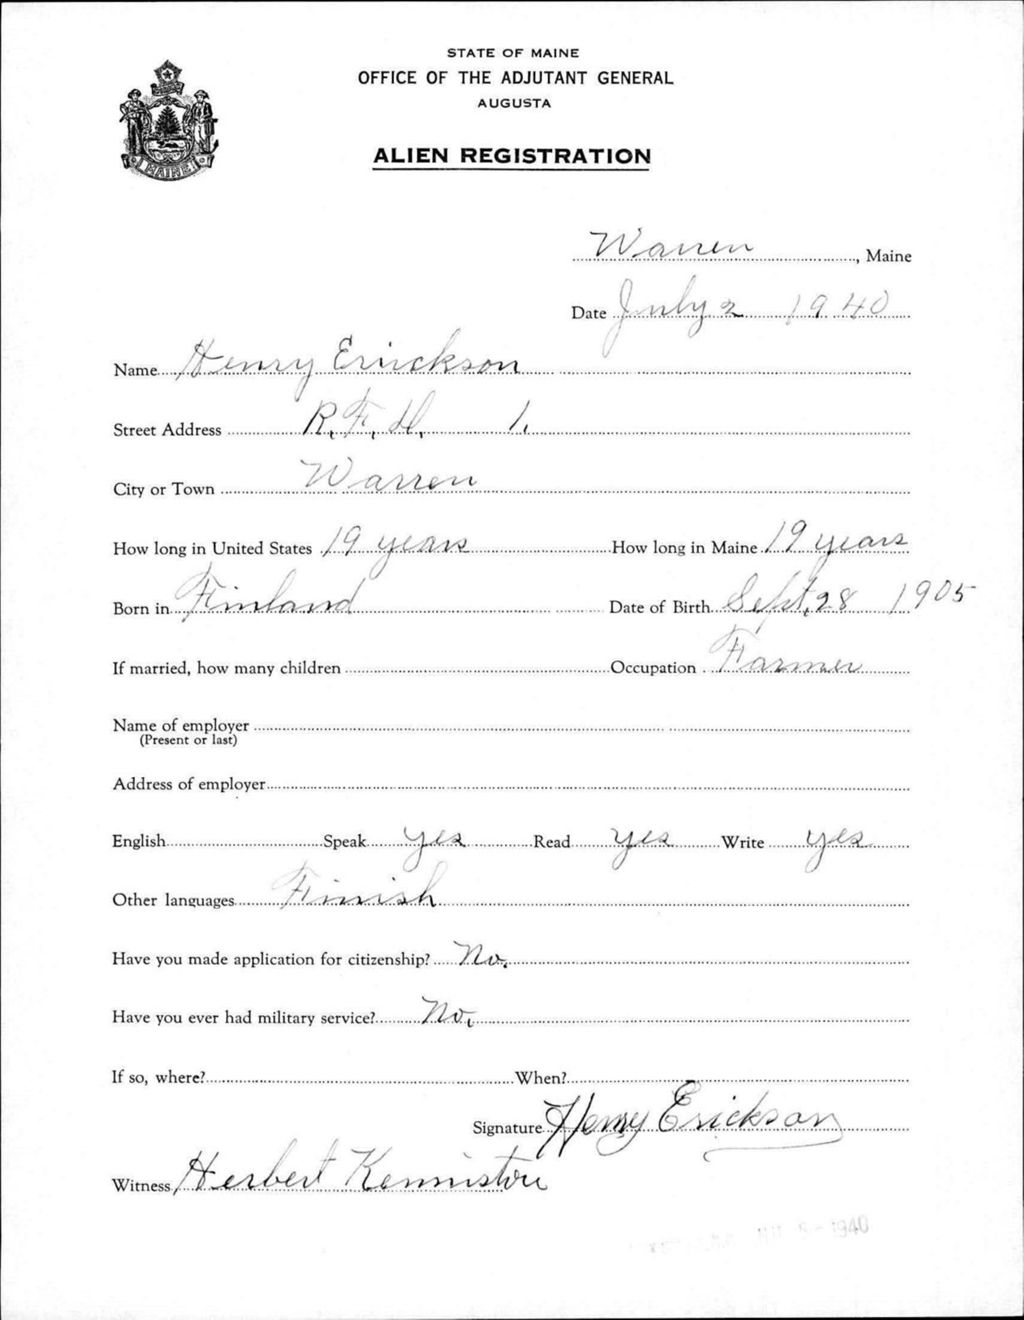 STATE OF MAINE
OFFICE OF THE ADJUTANT GENERAL
AUGUSTA
MAINE
ALIEN REGISTRATION
Warren, Maine
Date July 2 1940
Name Henry Erickson
Street Address R.F.D. 1.
City or Town Warren
How long in United States 19 years How long in Maine 19 years
Born in Finland Date of Birth Sept. 28 1905
If married, how many children Occupation Farmer
Name of employer
(Present or last)
Address of employer
English Speak yes Read yes Write yes
Other languages Finish
Have you made application for citizenship? No.
Have you ever had military service? No.
If so, where? When?
Signature Henry Erickson
Witness Herbert Kenniston
1940